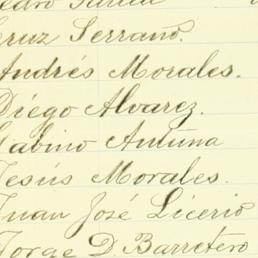 Cruz Serrano.
Andrés Morales.
Diégo Alvarez.
Gabino Antuna
Jesús Morales.
Juan José Licerio
Jorge D. Barretero